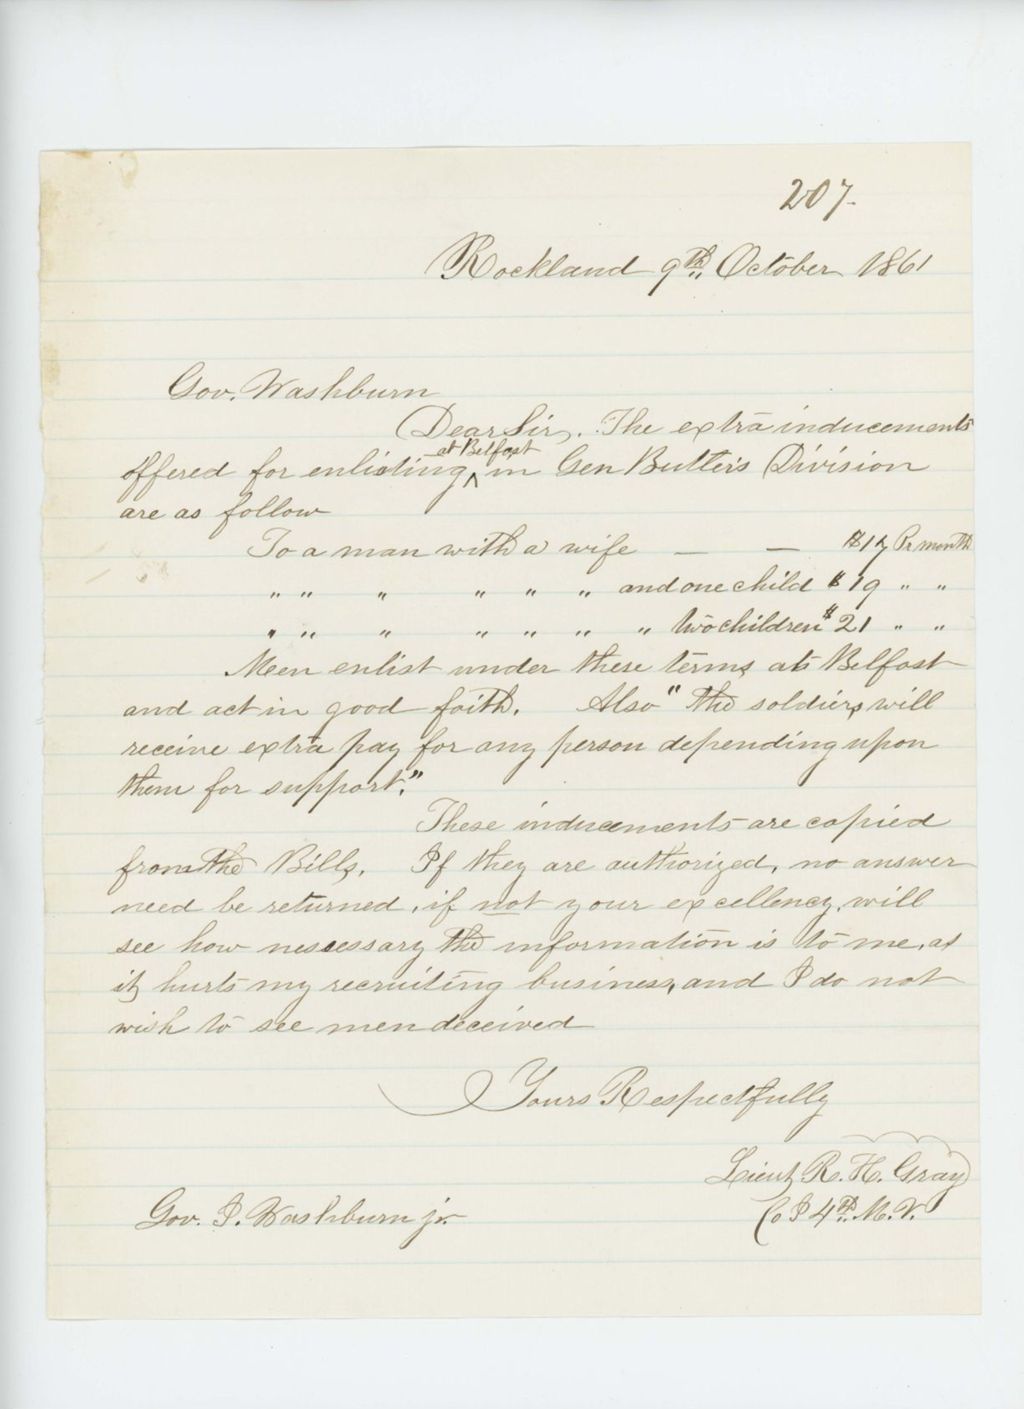 207.
Rockland 9th October 1861
Gov. Washburn
Dear Sir, The extra inducements
at Belfast
offered for enlisting ^ in Gen Butler's Division
are as follow
To a man with a wife — — $17 Pr month
" " " " " " and one child $19 " "
" " " " " " " two children $21 " "
Men enlist under these terms at Belfast
and act in good faith. Also "the soldiers will
receive extra pay for any person depending upon
them for support."
These inducements are copied
from the Bills. If they are authorized, no answer
need be returned, if not your excellency, will
see how nescessary the information is to me, as
it hurts my recruiting business, and I do not
wish to see men deceived
Yours Respectfully
Lieut R. H. Gray
Co I 4th M. V.
Gov. I. Washburn jr.